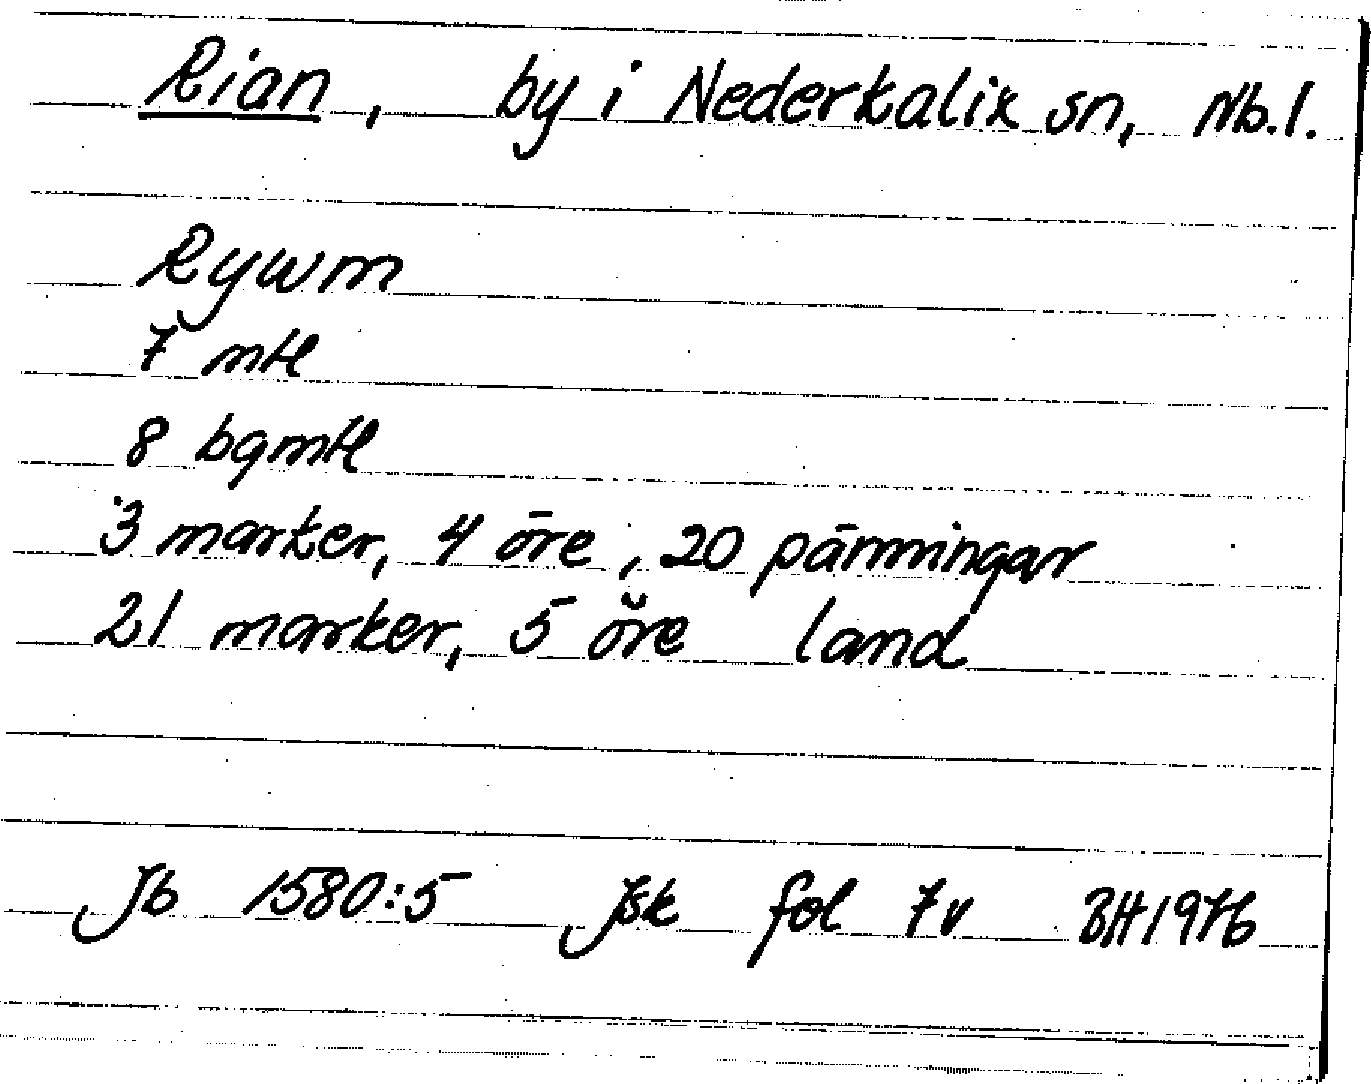 Rian, by i Nederkalix sn, Nb.l.
Rywm
7 mtl
8 bgmtl
3 marker, 4 öre, 20 pänningar
21 marker, 5 öre land
Jb 1580:5 Jsk fol 7v BH1976